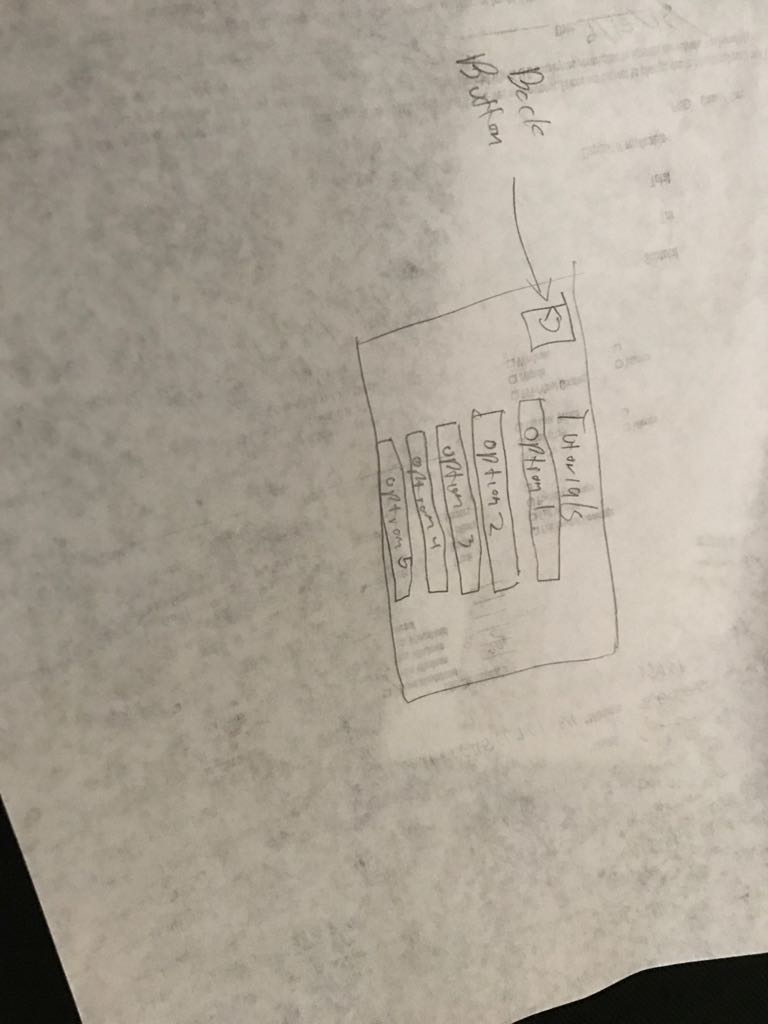 Back
Button
Tutorials
option 1
option 2
option 3
option 4
option 5